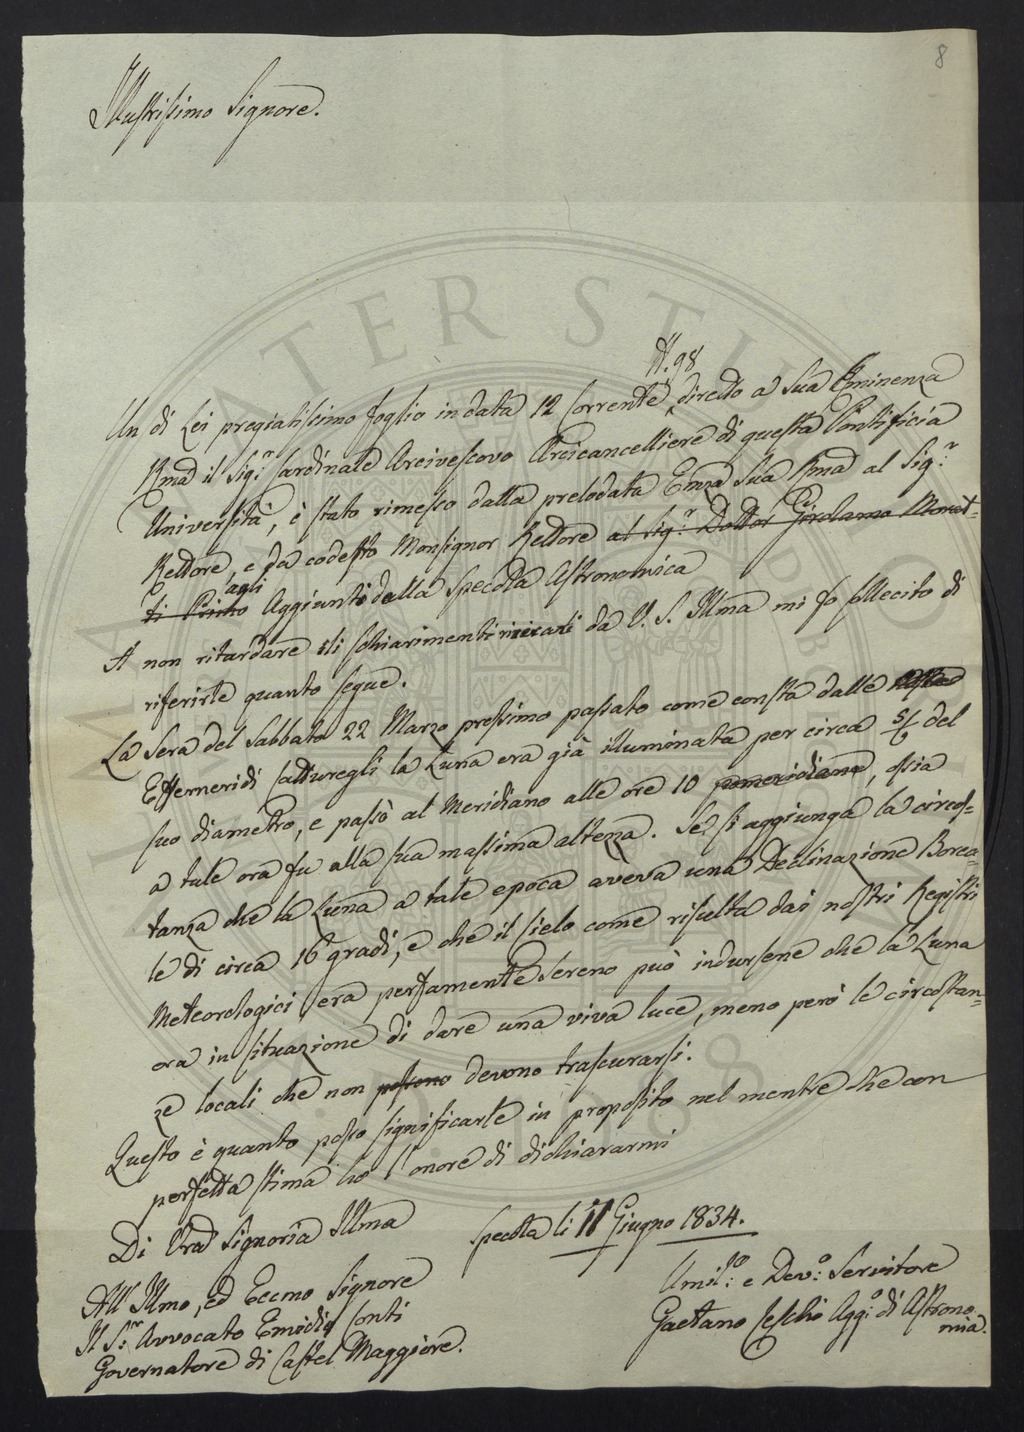 8
Illustrissimo Signore.
N. 98
Un di Lei pregiatissimo foglio in data 12 Corrente, diretto a Sua Eminenza
Rma il Sig.r Cardinale Arcivescovo Arcicancelliere di questa Pontificia
Università, è stato rimesso dalla prelodata Emza Sua Rma al Sig.r
Rettore, e da codesto Monsignor Rettore al Sig.r Dottor Girolamo
agli
Primo Aggiunti della Specola Astronomica
A non ritardare li schiarimenti da V. S. Illma mi fo sollecito di
riferirle quanto segue.
La Sera del Sabbato 22 Marzo prossimo passato come consta dalle
Effemeridi la Luna era già illuminata per circa 5/6 del
suo diametro, e passò al Meridiano alle ore 10 pomeridiane, ossia
a tale ora fu alla sua massima altezza. Se si aggiunga la circos-
tanza che la Luna a tale epoca aveva una Declinazione Borea-
le di circa 16 gradi, e che il Cielo come risulta dai nostri Registri
Meteorologici era perfamente sereno può indursene che la Luna
era in situazione di dare una viva luce, meno però le circostan-
ze locali che non possono devono trascurarsi.
Questo è quanto posso significarle in proposito nel mentre che con
perfetta stima ho l'onore di dichiararmi
Di Vra Signoria Illma
Specola li 11 Giugno 1834.
All' Illmo, ed Eccmo Signore
Il S.r Avvocato Emidio Conti
Governatore di Castel Maggiore.
Umil.o e Dev.o Servitore
Gaetano Ceschi Agg.o di Astrono
mia.
ALMA MATER STUDIORUM
A.D. 1088